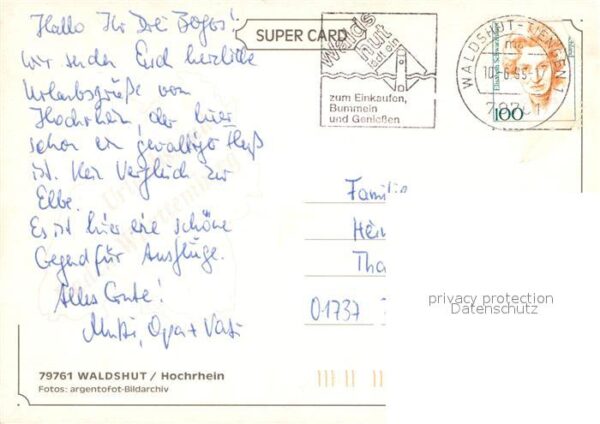 Hallo Ihr Drei
wir senden Euch herzliche
Urlaubsgrüße vom
Hochrhein, der hier
schon ein gewaltiger Fluß
ist. Kein Vergleich zur
Elbe.
Es ist hier eine schöne
Gegend für Ausflüge.
Alles Gute!
Mutti, Opa + Vati
SUPER CARD
Waldshut
lädt ein
zum Einkaufen,
Bummeln
und Genießen
WALDSHUT-TIENGEN 1
100
Familie
01737
privacy protection
Datenschutz
79761 WALDSHUT / Hochrhein
Fotos: argentofot-Bildarchiv